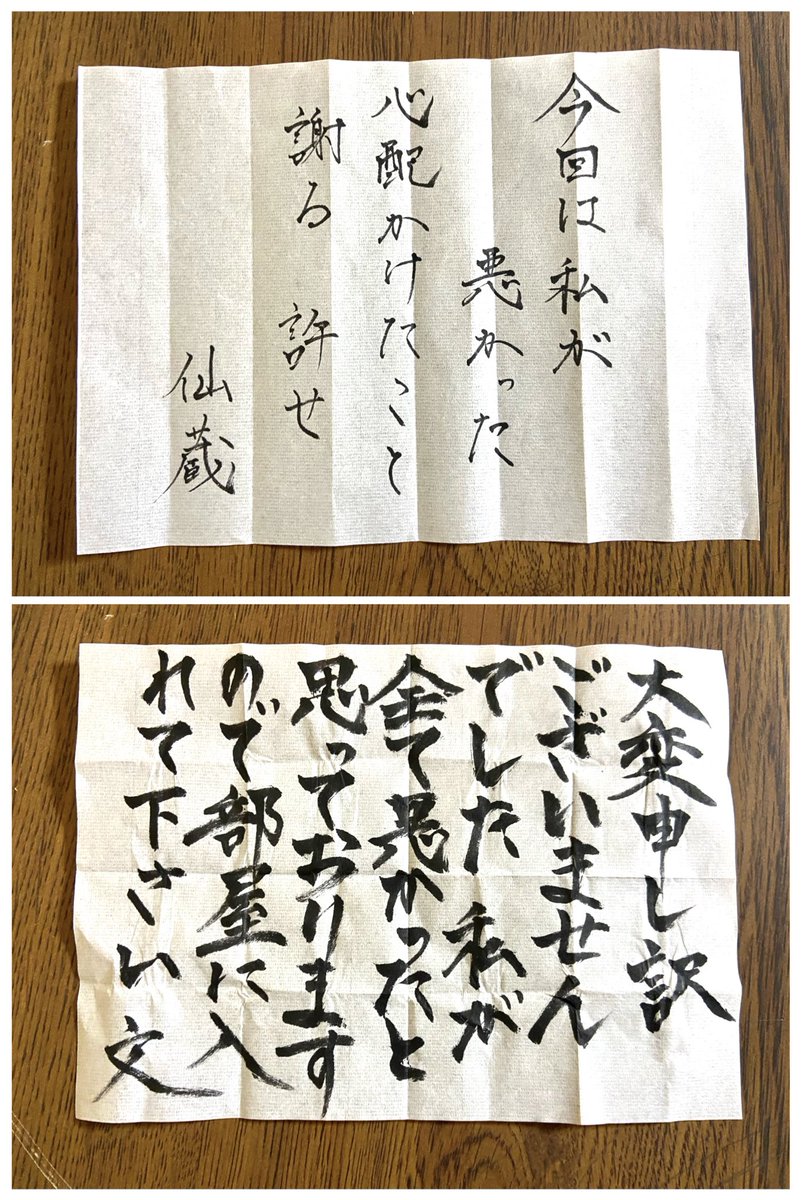 今回は私が
悪かった
心配かけたこと
謝る 許せ
仙蔵
大変申し訳
ございません
でした 私が
全て悪かったと
思っております
ので部屋に入
れて下さい 文